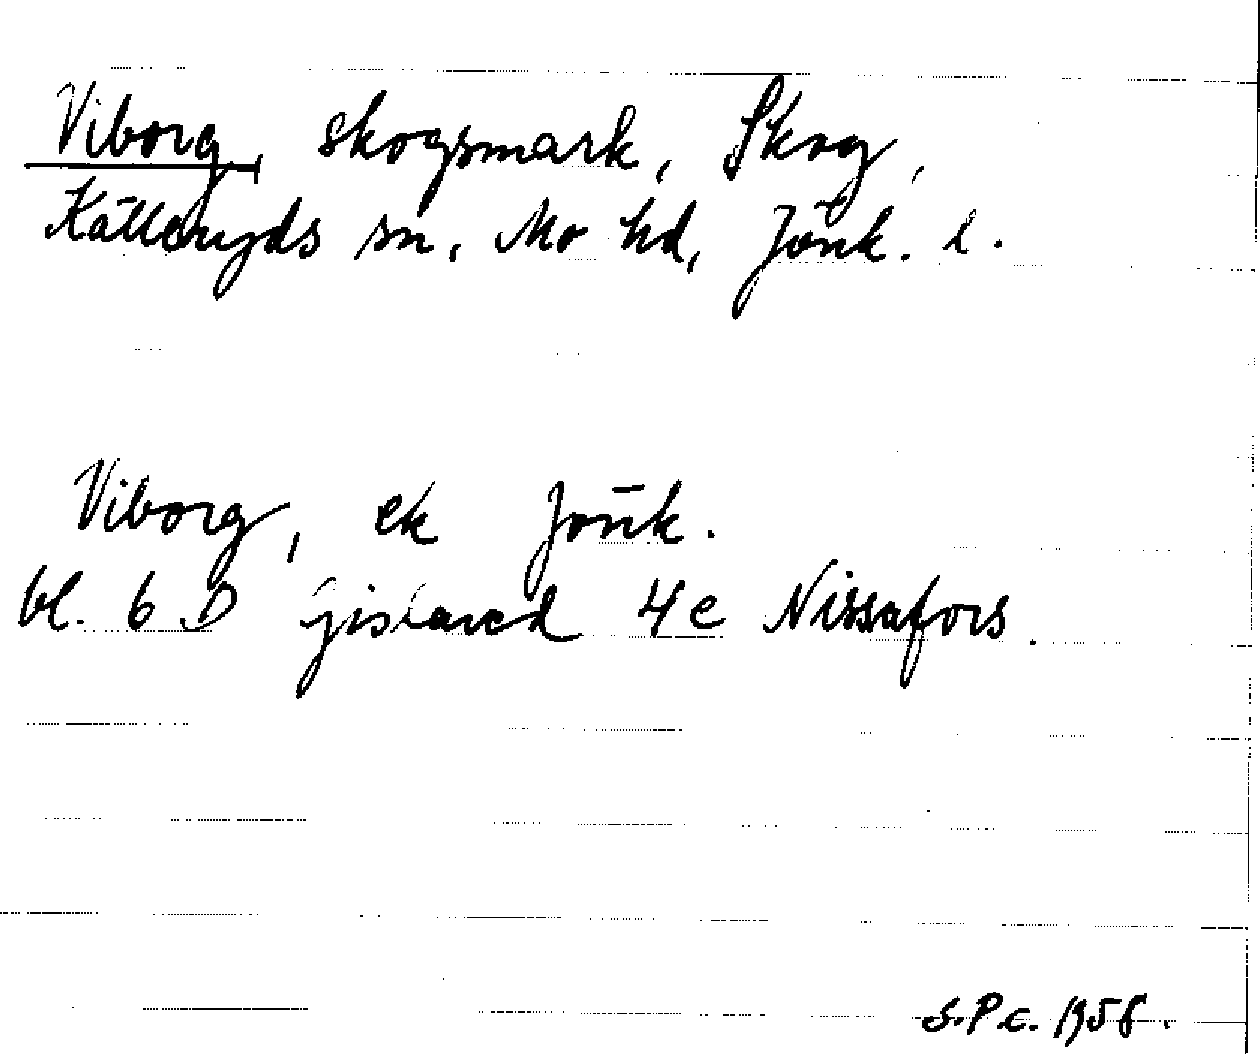 Viborg, skogsmark, Skog,
Källeryds sn, Mo hd, Jönk. l.
Viborg, ek Jönk.
bl. 6 D Gislaved 4e Nissafors.
S.P.C. 1958.